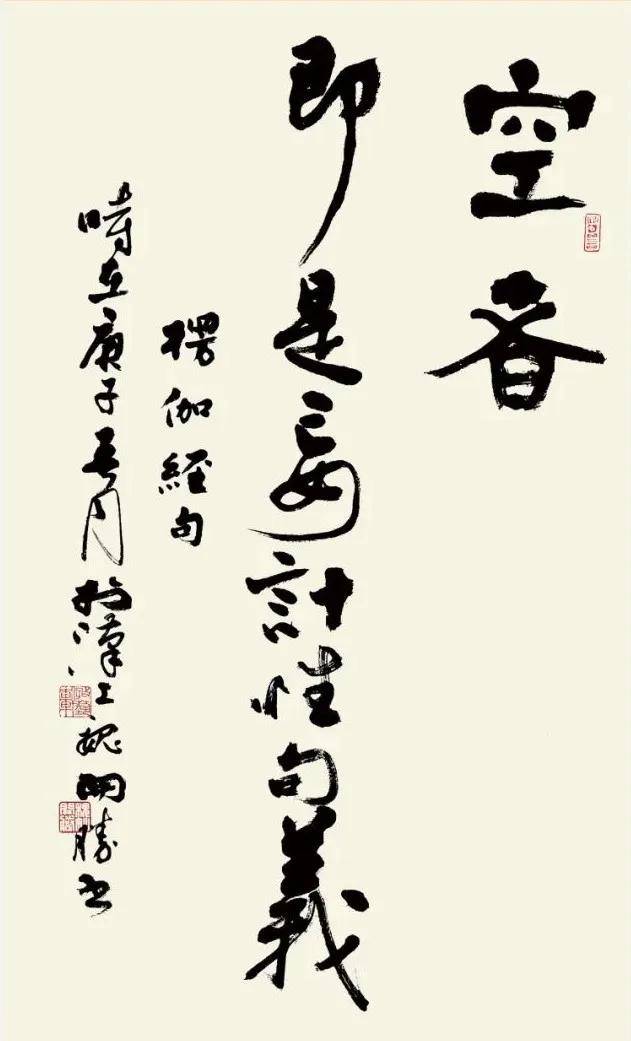 空者
即是妄計性句義
楞伽經句
時在庚子春月於漢上勝書